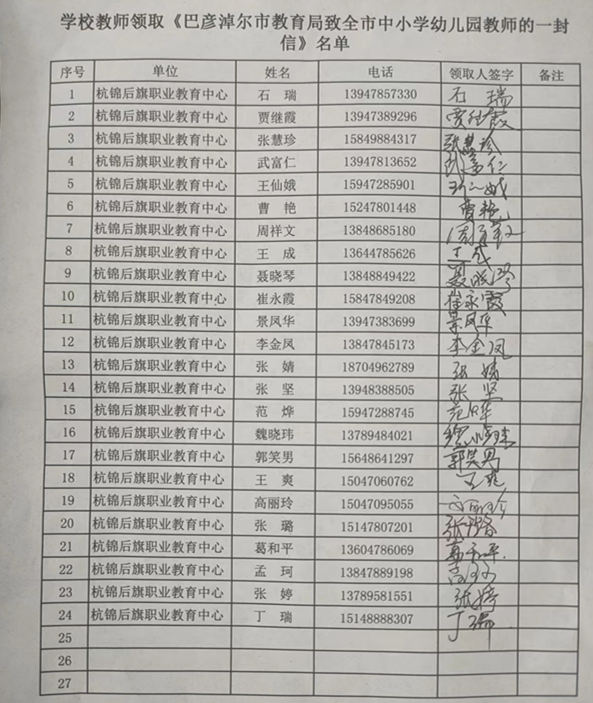 学校教师领取《巴彦淖尔市教育局致全市中小学幼儿园教师的一封
信》名单
序号 单位 姓名 电话 领取人签字 备注
1 杭锦后旗职业教育中心 石 瑞 13947857330 石 瑞
2 杭锦后旗职业教育中心 贾继霞 13947389296 贾继霞
3 杭锦后旗职业教育中心 张慧珍 15849884317 张慧珍
4 杭锦后旗职业教育中心 武富仁 13947813652 武富仁
5 杭锦后旗职业教育中心 王仙娥 15947285901 王仙娥
6 杭锦后旗职业教育中心 曹 艳 15247801448 曹艳
7 杭锦后旗职业教育中心 周祥文 13848685180 周祥文
8 杭锦后旗职业教育中心 王 成 13644785626 王成
9 杭锦后旗职业教育中心 聂晓琴 13848849422 聂晓琴
10 杭锦后旗职业教育中心 崔永霞 15847849208 崔永霞
11 杭锦后旗职业教育中心 景凤华 13947383699 景凤华
12 杭锦后旗职业教育中心 李金凤 13847845173 李金凤
13 杭锦后旗职业教育中心 张 婧 18704962789 张 婧
14 杭锦后旗职业教育中心 张 坚 13948388505 张 坚
15 杭锦后旗职业教育中心 范 烨 15947288745 范烨
16 杭锦后旗职业教育中心 魏晓玮 13789484021 魏晓玮
17 杭锦后旗职业教育中心 郭笑男 15648641297 郭笑男
18 杭锦后旗职业教育中心 王 爽 15047060762 王爽
19 杭锦后旗职业教育中心 高丽玲 15047095055 高丽玲
20 杭锦后旗职业教育中心 张 璐 15147807201 张璐
21 杭锦后旗职业教育中心 葛和平 13604786069 葛和平
22 杭锦后旗职业教育中心 孟 珂 13847889198
23 杭锦后旗职业教育中心 张 婷 13789581551 张婷
24 杭锦后旗职业教育中心 丁 瑞 15148888307 丁瑞
25
26
27